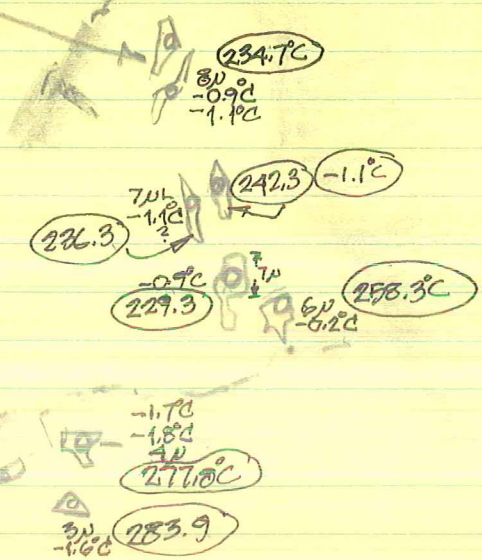 234.7°C
8µ
-0.9°C
-1.1°C
242.3
-1.1°C
7µ
-1.1°C
?
226.3
-0.9°C
229.3
7µ
6µ
-0.2°C
258.3°C
-1.7°C
-1.8°C
4µ
277.8°C
3µ
-1.6°C
283.9